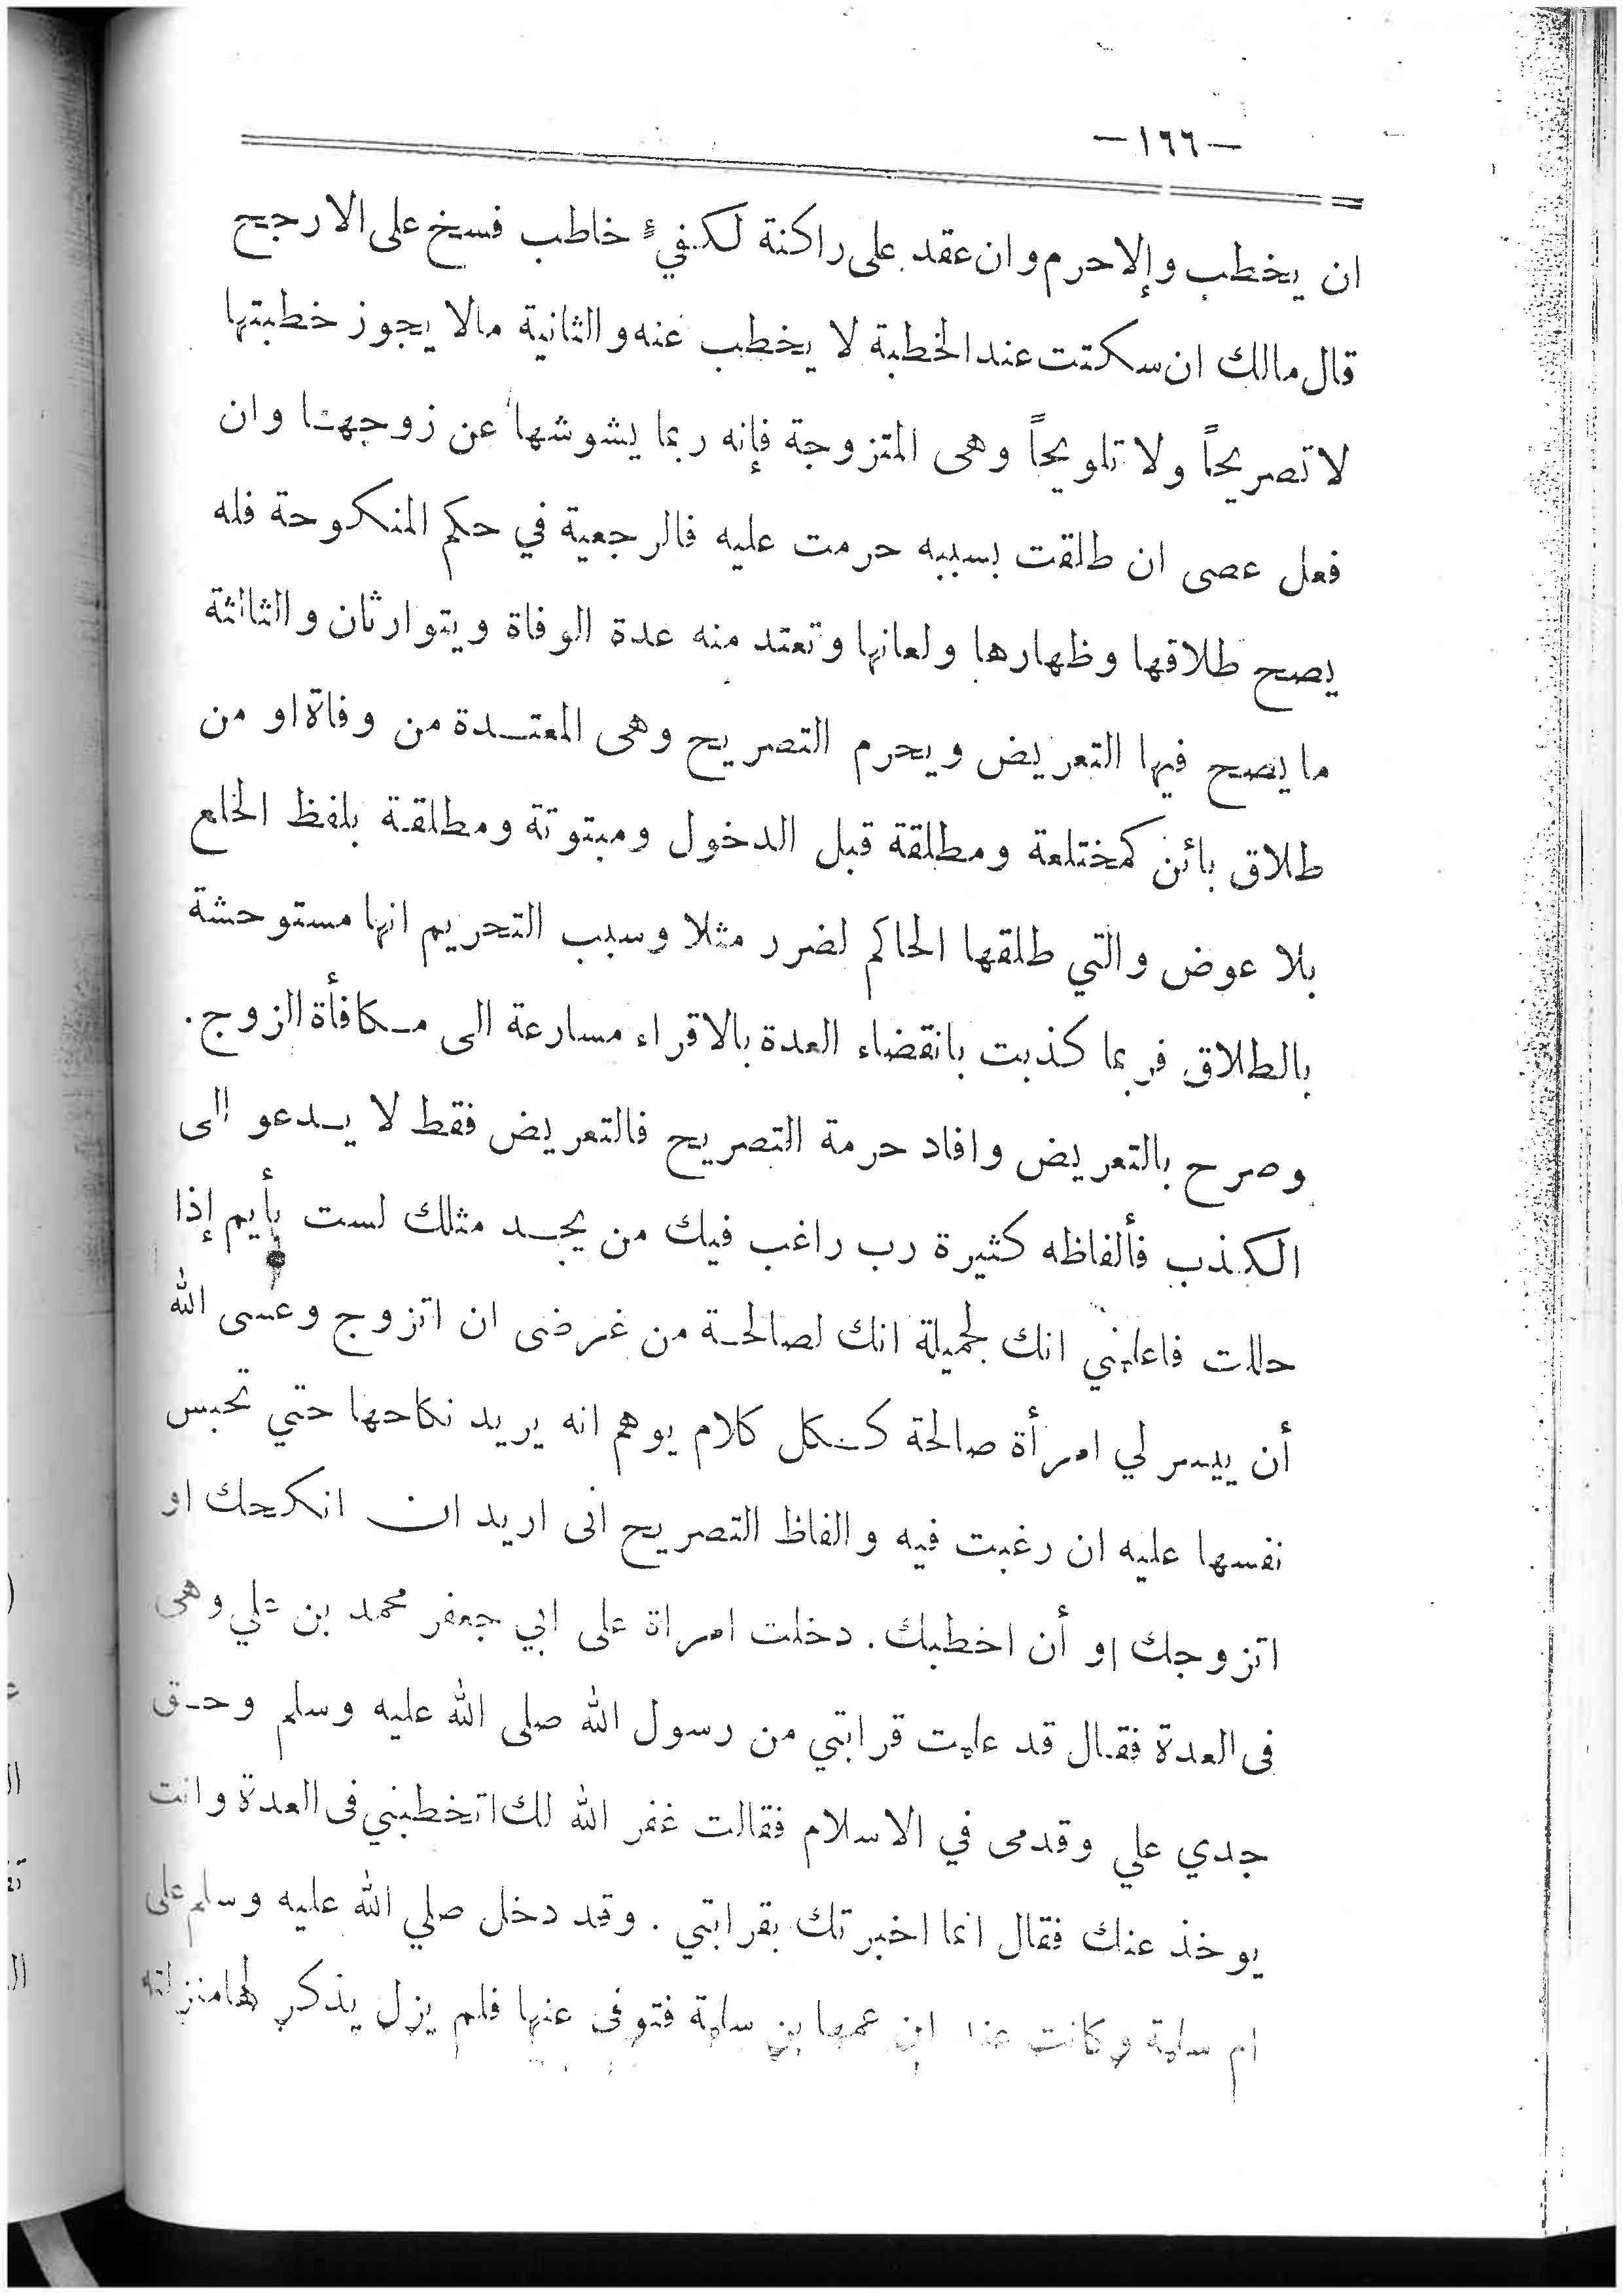 —١٦٦—
ان يخطب وإلا حرم وان عقد على راكنة لكفيء خاطب فسخ على الارجح
قال مالك ان سكتت عند الخطبة لا يخطب عنه والثانية مالا يجوز خطبتها
لا تصريحاً ولا تلويحاً وهى المتزوجة فإنه ربما يشوشها عن زوجها وان
فعل عصى ان طلقت بسببه حرمت عليه فالرجعية في حكم المنكوحة فله
يصح طلاقها وظهارها ولعانها وتعتد منه عدة الوفاة ويتوارثان والثالثة
ما يصح فيها التعريض ويحرم التصريح وهى المعتدة من وفاة او من
طلاق بائن كمختلعة ومطلقة قبل الدخول ومبتوتة ومطلقة بلفظ الخلع
بلا عوض والتي طلقها الحاكم لضرر مثلا وسبب التحريم انها مستوحشة
بالطلاق فربما كذبت بانقضاء العدة بالاقراء مسارعة الى مكافأة الزوج.
وصرح بالتعريض وافاد حرمة التصريح فالتعريض فقط لا يدعو الى
الكذب فألفاظه كثيرة رب راغب فيك من يجد مثلك لست بأيم إذا
حللت فاعلميني انك لجميلة انك لصالحة من غرضى ان اتزوج وعسى الله
أن ييسر لي امرأة صالحة ككل كلام يوهم انه يريد نكاحها حتي تحبس
نفسها عليه ان رغبت فيه والفاظ التصريح انى اريد ان انكحك او
اتزوجك او أن اخطبك. دخلت امراة على ابي جعفر محمد بن علي وهى
فى العدة فقال قد علمت قرابتي من رسول الله صلى الله عليه وسلم وحق
جدي علي وقدمى في الاسلام فقالت غفر الله لك اتخطبني فى العدة وانت
يوخذ عنك فقال انما اخبرتك بقرابتي. وقد دخل صلي الله عليه وسلم على
ام سلمة وكانت عند ابن عمها بن سلمة فتوفى عنها فلم يزل يذكر لها منزلته